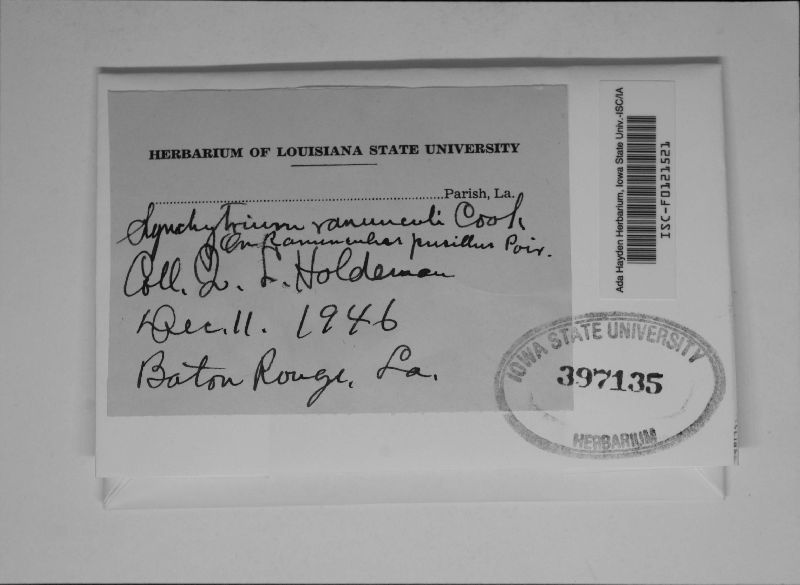 HERBARIUM OF LOUISIANA STATE UNIVERSITY
Parish, La.
Synchytrium ranunculi Cook
On Ranunculus pusillus Poir.
Coll. Q. L. Holdeman
Dec. 11. 1946
Baton Rouge, La.
Ada Hayden Herbarium, Iowa State Univ.-ISC/IA
ISC-F0121521
IOWA STATE UNIVERSITY
397135
HERBARIUM